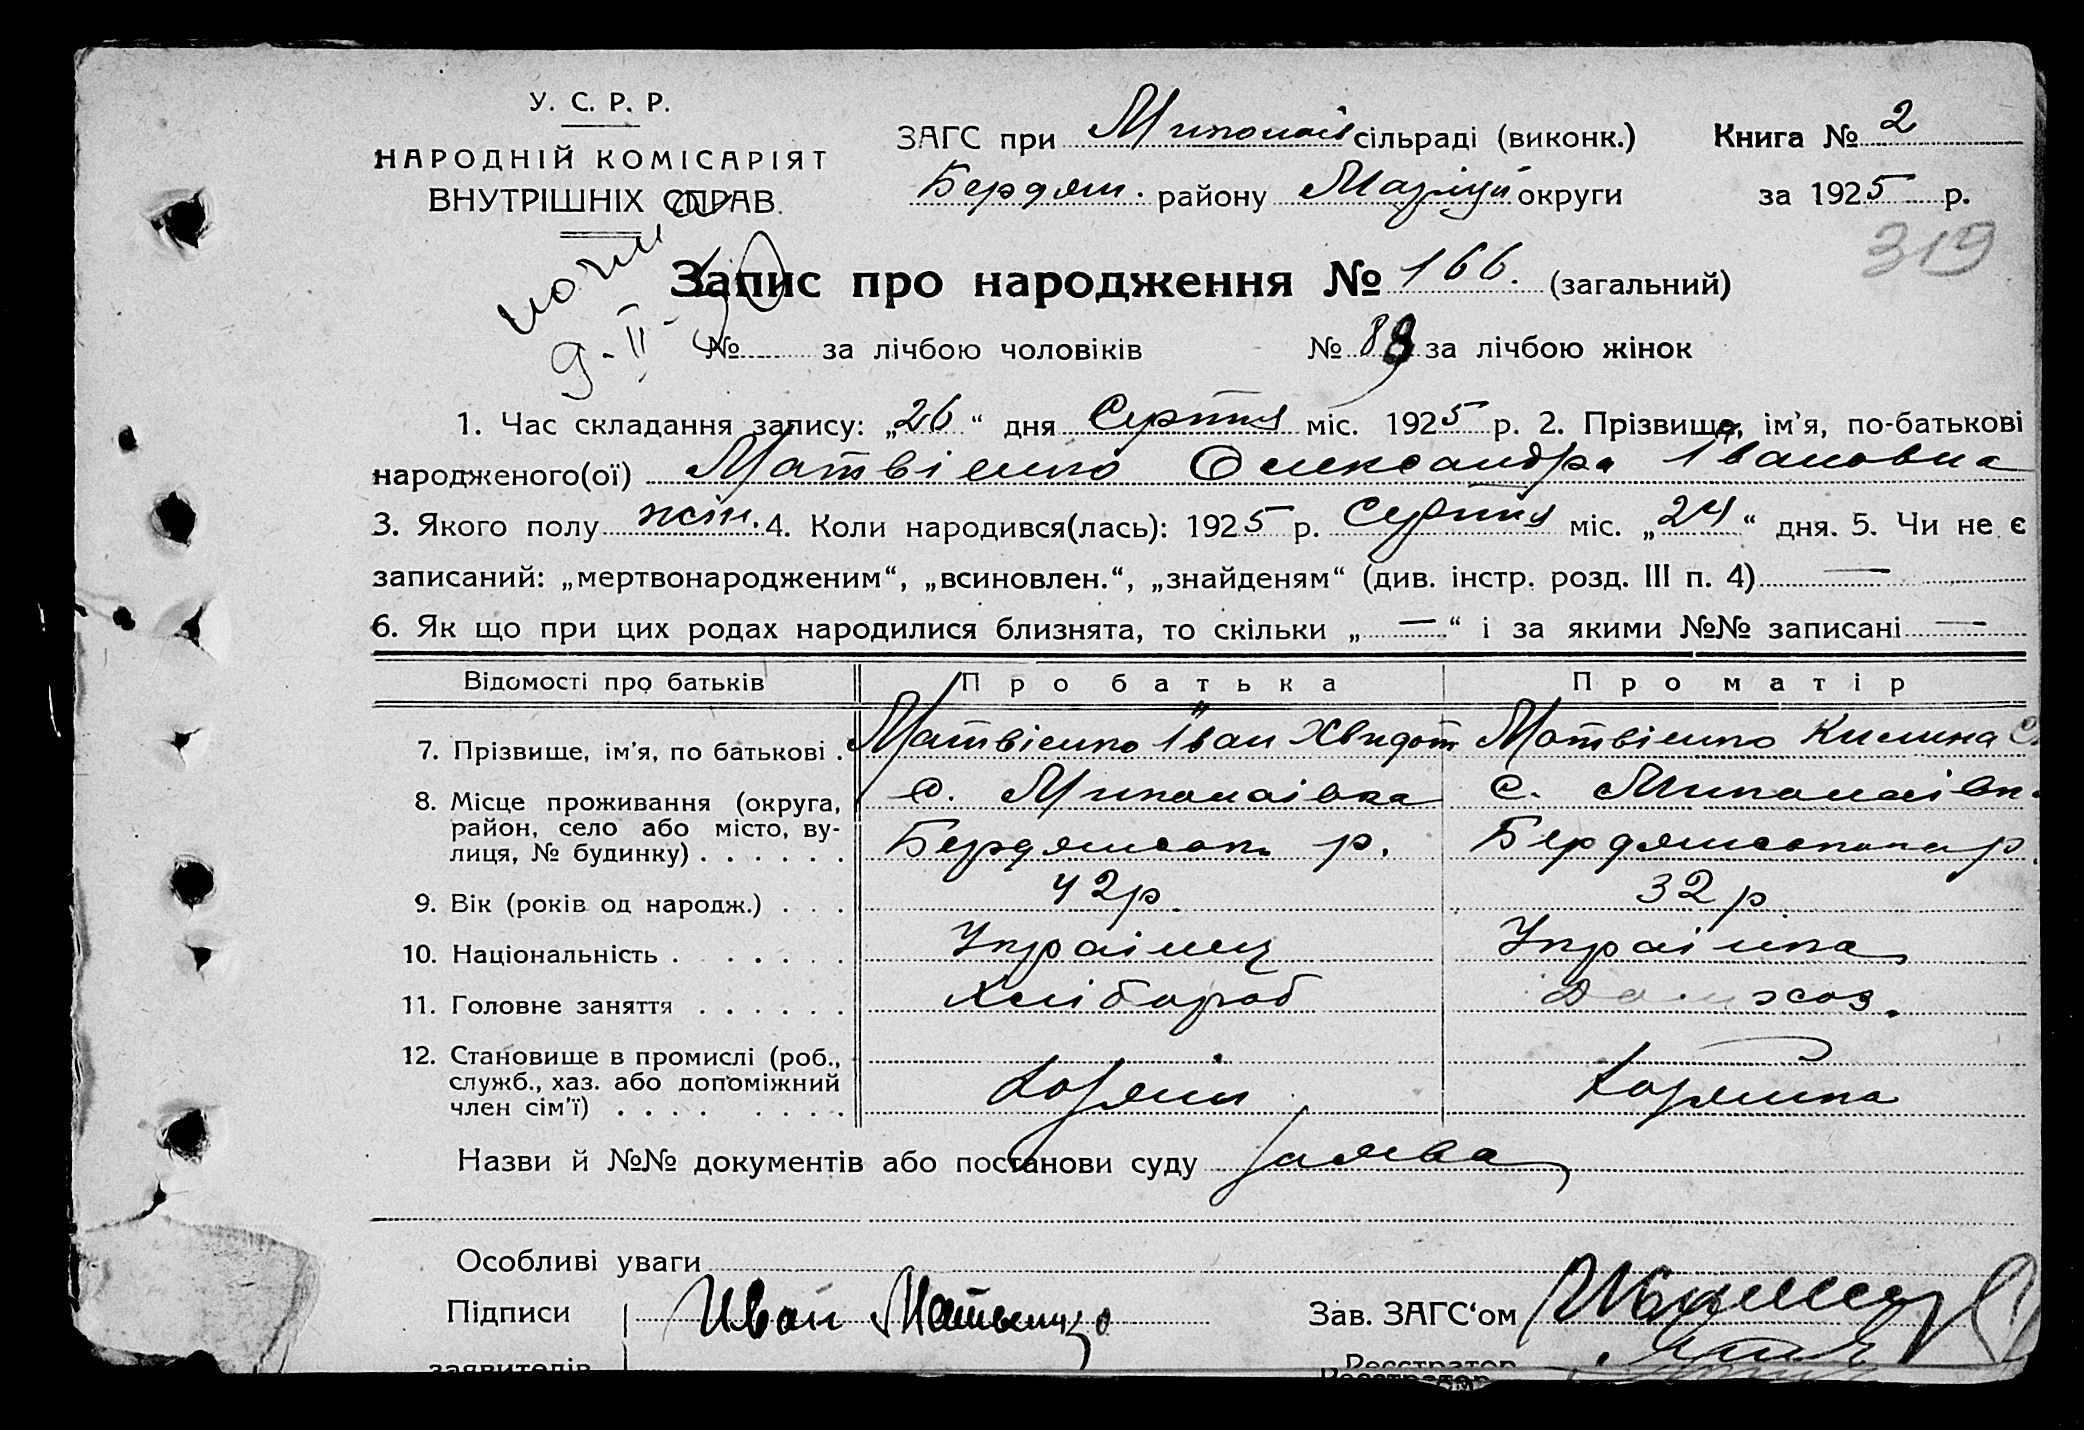 У. С. Р. Р.
НАРОДНІЙ КОМІСАРІЯТ
ВНУТРІШНІХ СПРАВ.
ЗАГС при Миколаїв сільраді (виконк.) Книга № 2
Бердян. району Маріуп округи за 1925 р.
319
Запис про народження № 166. (загальний)
9-II-
№ за лічбою чоловіків № 89 за лічбою жінок
1. Час складання запису: „26“ дня Серпня міс. 1925 р. 2. Прізвище, ім'я, по-батькові
народженого(ої) Матвієнко Олександра Івановна
3. Якого полу жін. 4. Коли народився(лась): 1925 р. Серпня міс. „24“ дня. 5. Чи не є
записаний: „мертвонародженим“, „всиновлен.“, „знайденям“ (див. інстр. розд. III п. 4) —
6. Як що при цих родах народилися близнята, то скільки „—“ і за якими №№ записані —
Відомості про батьків Про батька Про матір
7. Прізвище, ім'я, по батькові . Матвієнко Іван Хвидот Матвієнко Килина С.
8. Місце проживання (округа, район, село або місто, вулиця, № будинку) . . . . . . с. Миколаівка с. Миколаівк.
Бердянськ. р. Бердянського р.
9. Вік (років од народж.) . . . 42 р. 32 р.
10. Національність . . . . . . . Украінец Украінка
11. Головне заняття . . . . . . Хлібороб Домхоз.
12. Становище в промислі (роб., служб., хаз. або допоміжний член сім'ї) . . . . . . . . Хозяин Хозяйка
Назви й №№ документів або постанови суду заява
Особливі уваги
Підписи Иван Матвиенко Зав. ЗАГС'ом
заявителів Реєстратор
Реєстратор